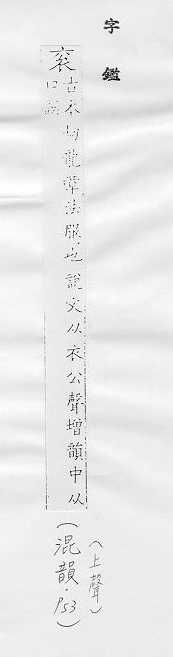 字鑑
袞古本切龍章法服也說文从衣公聲增韻中从
口誤
(上聲)
(混韻·P53)